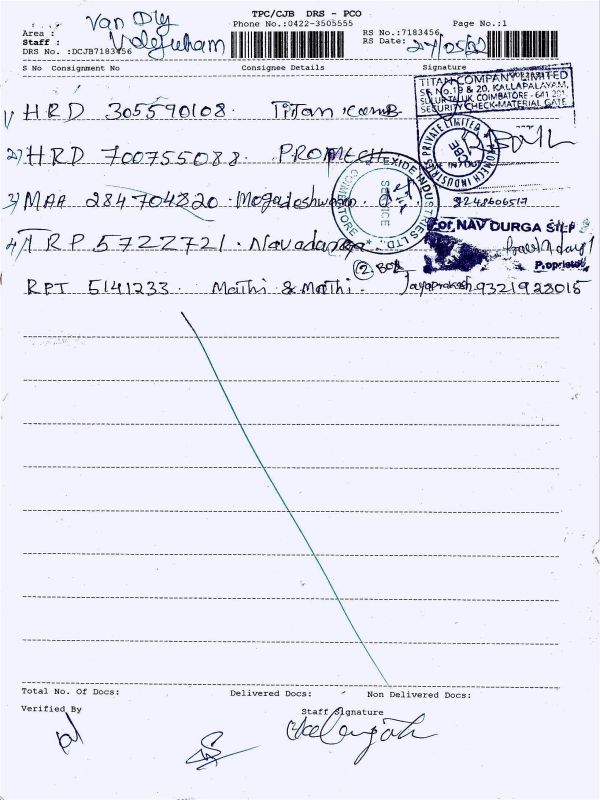 TPC/CJB DRS - PCO
Phone No.:0422-3505555
Area : Van Dly
Staff :
RS No.:7183456
RS Date: 24/05/22
Page No.:1
DRS No. :DCJB7183456
S No Consignment No Consignee Details Signature
TITAN COMPANY LIMITED
SF. No.19 & 20, KALLAPALAYAM,
SULUR TALUK, COIMBATORE - 641 201.
SECURITY CHECK-MATERIAL GATE
1) HRD 305590108. Titan
2) HRD 700755088. PROMECH
3) MAA 284704820. 8248606517
EXIDE INDUSTRIES LTD.
SERVICE
COIMBATORE
For NAV DURGA
4) TRP 5722721. Navadurga
Proprietor
② Box
RPT 5141233. Mathi & Mathi. Jayaprakash 9321928015
Total No. Of Docs: Delivered Docs: Non Delivered Docs:
Verified By Staff Signature